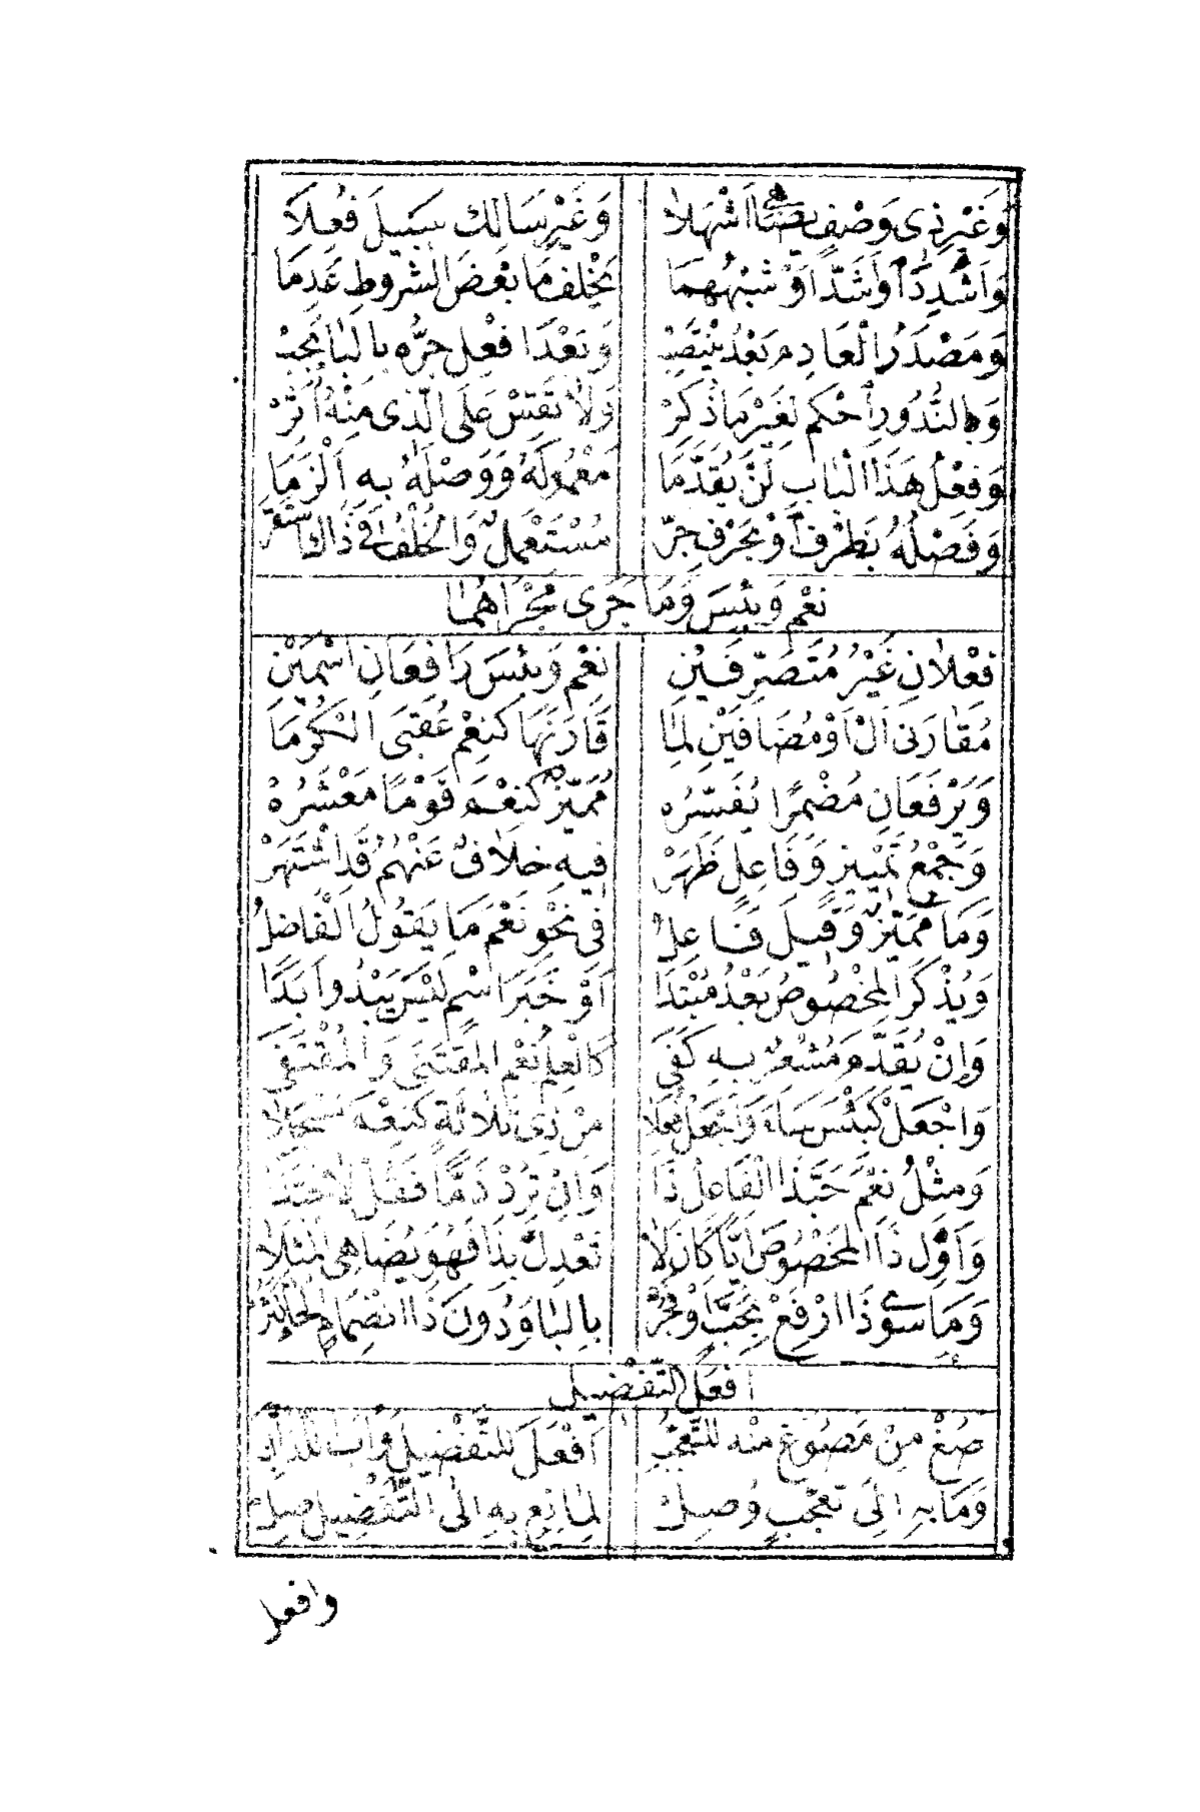 وَغَيْرِ ذِى وَصْفٍ يُضَاهِى اَشْهَلَا وَغَيْرِ سَالِكٍ سَبِيلَ فُعِلَا
وَاَشْدِدَ اَوْ اَشَدَّ اَوْ شِبْهُهُمَا يَخْلُفُ مَا بَعْضَ الشُّرُوطِ عَدِمَا
وَمَصْدَرُ الْعَادِمِ بَعْدُ يَنْتَصِبْ وَبَعْدَ اَفْعِلْ جَرُّهُ بِالْبَا يَجِبْ
وَبِالنُّدُورِ اُحْكُمْ لِغَيْرِ مَا ذُكِرْ وَلَا تَقِسْ عَلَى الَّذِى مِنْهُ اُثِرْ
وَفِعْلُ هَذَا الْبَابِ لَنْ يُقَدَّمَا مَعْمُولُهُ وَوَصْلَهُ بِهِ اَلْزَمَا
وَفَصْلُهُ بِظَرْفٍ اَوْ بِحَرْفِ جَرّ مُسْتَعْمَلٌ وَالْخُلْفُ فِى ذَاكَ اسْتَقَرّ
نِعْمَ وَبِئْسَ وَمَا جَرَى مَجْرَاهُمَا
فِعْلَانِ غَيْرُ مُتَصَرِّفَيْنِ نِعْمَ وَبِئْسَ رَافِعَانِ اسْمَيْنِ
مُقَارِنَىْ اَلْ اَوْ مُضَافَيْنِ لِمَا قَارَنَهَا كَنِعْمَ عُقْبَى الْكُرَمَا
وَيَرْفَعَانِ مُضْمَرًا يُفَسِّرُه مُمَيِّزٌ كَنِعْمَ قَوْمًا مَعْشَرُهْ
وَجَمْعُ تَمْيِيزٍ وَفَاعِلٍ ظَهَرْ فِيهِ خِلَافٌ عَنْهُمُ قَدِ اشْتَهَرْ
وَمَا مُمَيِّزٌ وَقِيلَ فَاعِلُ فِى نَحْوِ نِعْمَ مَا يَقُولُ الْفَاضِلُ
وَيُذْكَرُ الْمَخْصُوصُ بَعْدُ مُبْتَدَا اَوْ خَبَرَ اسْمٍ لَيْسَ يَبْدُوا اَبَدًا
وَاِنْ يُقَدَّمْ مُشْعِرٌ بِهِ كَفَى كَالْعِلْمُ نِعْمَ الْمُقْتَنَى وَالْمُقْتَفَى
وَاجْعَلْ كَبِئْسَ سَاءَ وَاجْعَلْ فَعُلَا مِنْ ذِى ثَلَاثَةٍ كَنِعْمَ مُسْجَلَا
وَمِثْلُ نِعْمَ حَبَّذَا الْفَاعِلُ ذَا وَاِنْ تُرِدْ ذَمًّا فَقُلْ لَا حَبَّذَا
وَاَوْلِ ذَا الْمَخْصُوصَ اَيًّا كَانَ لَا تَعْدِلْ بِذَا فَهُوَ يُضَاهِى الْمَثَلَا
وَمَا سِوَى ذَا ارْفَعْ بِحَبَّ اَوْ فَجُرّ بِالْبَا وَدُونَ ذَا انْضِمَامُ الْحَا كَثُرْ
اَفْعَلُ التَّفْضِيلِ
صُغْ مِنْ مَصُوغٍ مِنْهُ لِلتَّعَجُّبِ اَفْعَلَ لِلتَّفْضِيلِ وَأْبَ اللَّذْ اُبِى
وَمَا بِهِ اِلَى تَعَجُّبٍ وُصِلْ لِمَانِعٍ بِهِ اِلَى التَّفْضِيلِ صِلْ
وافعل